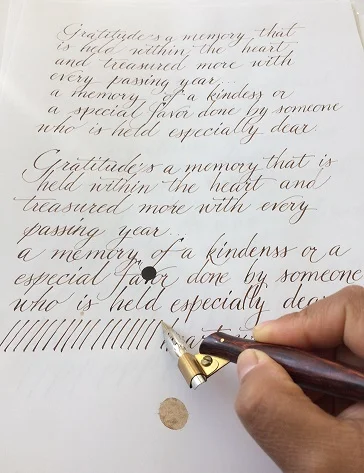 Gratitude's a memory that
is held within the heart
and treasured more with
every passing year...
a memory of a kindess or
a special favor done by someone
who is held especially dear.
Gratitude's a memory that is
held within the heart and
treasured more with every
passing year...
a memory of a kindenss or a
especial favr done by someone
who is held especially dear